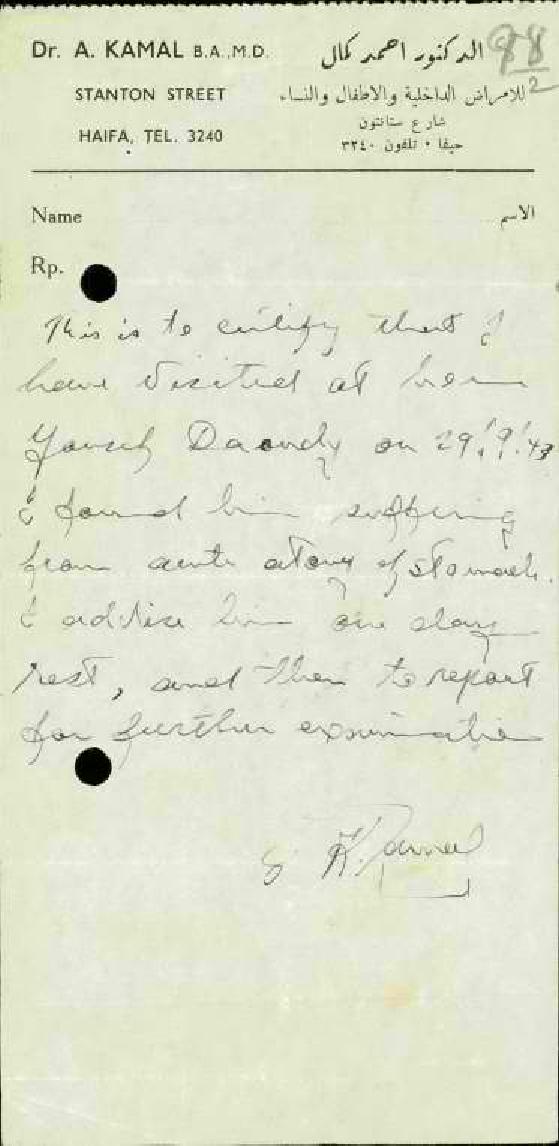 Dr. A. KAMAL B.A., M.D.
STANTON STREET
HAIFA, TEL. 3240
الدكتور احمد كمال
للامراض الداخلية والاطفال والنساء
شارع ستانتون
حيفا • تلفون ٣٢٤٠
98
2
Name
الاسم
Rp.
This is to certify that I
have visited at home
Yousef Daoudy on 29/9/43
& found him suffering
from acute atony of stomach.
I advise him one day
rest, and then to report
for further examination
Kamal